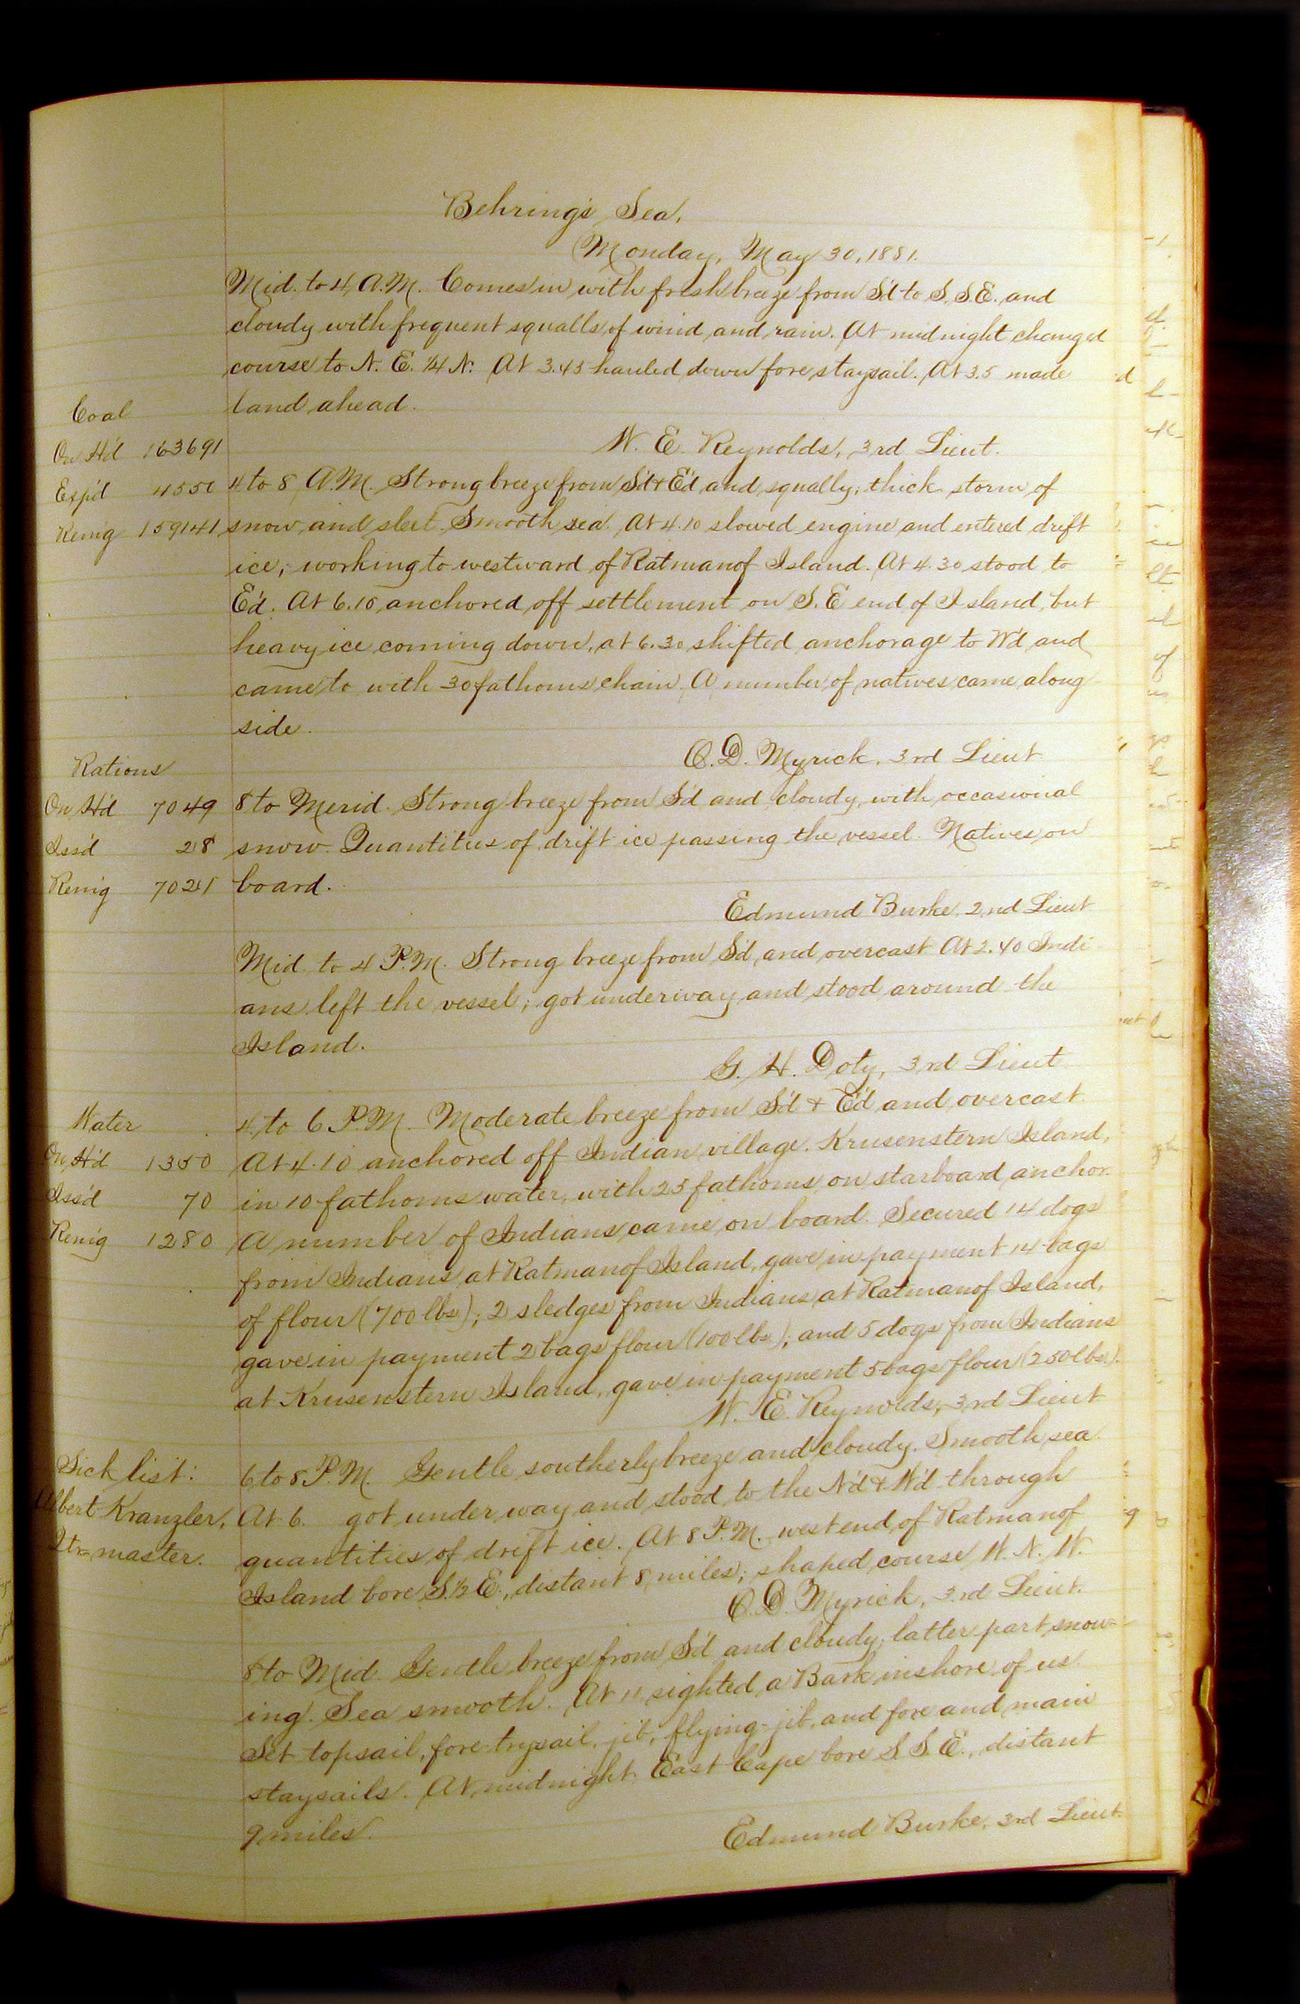 Behring's Sea,
Monday, May 30, 1881.
Mid. to 4 A.M. Comes in with fresh breeze from S'd to S. S.E. and
cloudy with frequent squalls of wind and rain. At midnight changed
course to N. E. 1/4 N. At 3.45 hauled down fore staysail. At 3.5 made
land ahead.
Coal
W. E. Reynolds, 3rd Lieut.
On H'd 163691
4 to 8 A.M. Strong breeze from S'd & E'd and squally; thick storm of
Exp'd 4550
snow and sleet. Smooth sea. At 4.10 slowed engine and entered drift
Rem'g 159141
ice; working to westward of Ratmanof Island. At 4.30 stood to
E'd. At 6.10 anchored off settlement on S. E end of Island, but
heavy ice coming down, at 6.30 shifted anchorage to W'd and
came to with 30 fathoms chain. A number of natives came along
side.
O. D. Myrick, 3rd Lieut
Rations
8 to Merid. Strong breeze from S'd and cloudy, with occasional
On H'd 7049
snow. Quantities of drift ice passing the vessel. Natives on
Iss'd 28
board.
Rem'g 7021
Edmund Burke, 2nd Lieut
Mid. to 4 P.M. Strong breeze from S'd and overcast At 2.40 Indi
ans left the vessel; got underway and stood around the
Island.
G. H. Doty, 3rd Lieut
4 to 6 P.M. Moderate breeze from S'd & E'd and overcast
Water
At 4.10 anchored off Indian village. Krusenstern Island,
On H'd 1350
in 10 fathoms water, with 25 fathoms on starboard anchor.
Iss'd 70
A number of Indians came on board. Secured 14 dogs
Rem'g 1280
from Indians at Ratmanof Island, gave in payment 14 bags
of flour (700 lbs); 2 sledges from Indians at Ratmanof Island,
gave in payment 2 bags flour (100 lbs); and 5 dogs from Indians
at Krusenstern Island, gave in payment 5 bags flour (250 lbs).
W. E. Reynolds, 3rd Lieut
6 to 8 P.M. Gentle southerly breeze and cloudy. Smooth sea.
Sick list:
At 6. got under way and stood to the N'd & W'd through
Albert Kranzler,
quantities of drift ice. At 8 P.M. west end of Ratmanof
Qtr master.
Island bore S. 1/2 E., distant 8 miles; shaped course W. N. W.
O. D. Myrick, 3rd Lieut.
8 to Mid. Gentle breeze from S'd and cloudy; latter part snow-
ing. Sea smooth. At 11 sighted a Bark inshore of us.
Set topsail, fore-trysail, jib, flying-jib, and fore and main
staysails. At midnight East Cape bore S. S. E., distant
9 miles.
Edmund Burke, 3rd Lieut.